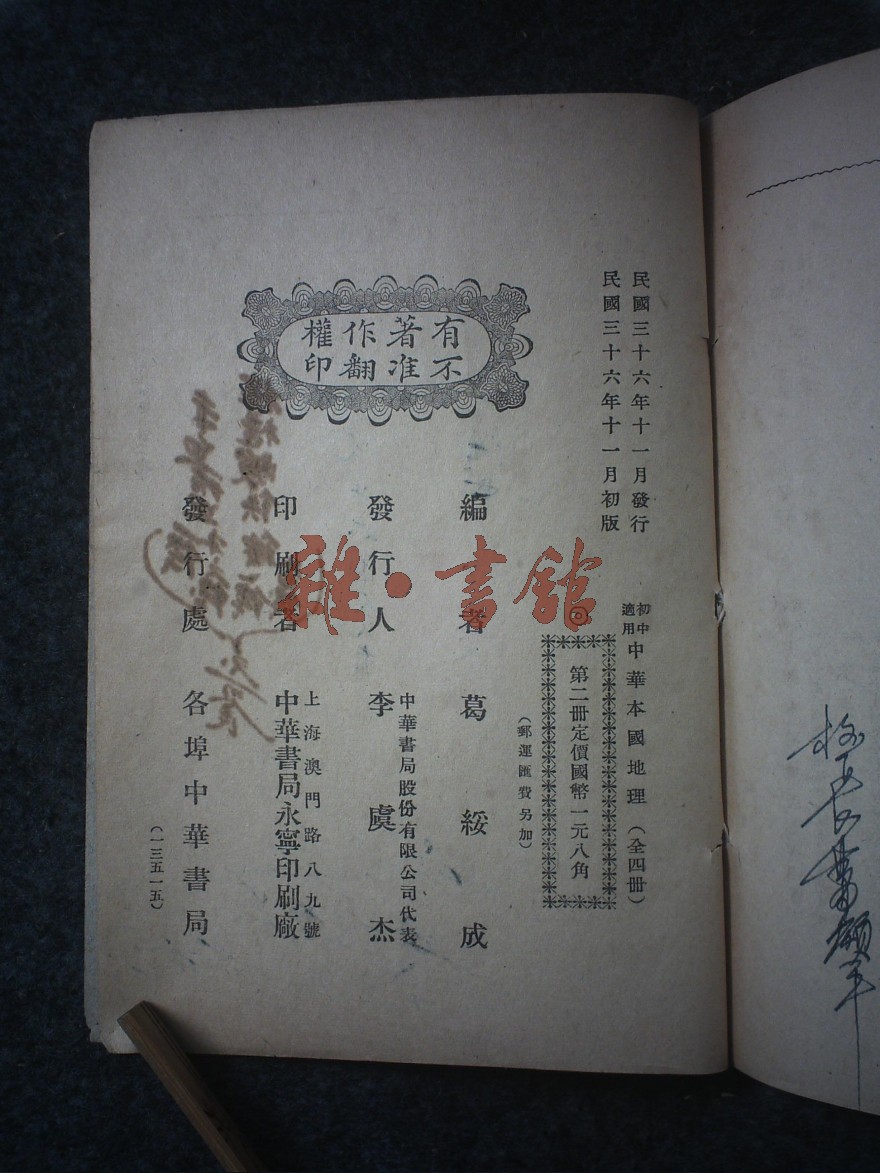 民國三十六年十一月發行
民國三十六年十一月初版
初中適用 中華本國地理（全四冊）
第二冊定價國幣一元八角
（郵運匯費另加）
有著作權
不准翻印
編者 葛綏成
發行人 中華書局股份有限公司代表
李虞杰
印刷者 上海澳門路八九號
中華書局永寧印刷廠
發行處 各埠中華書局
（一三五一五）
雜·書館